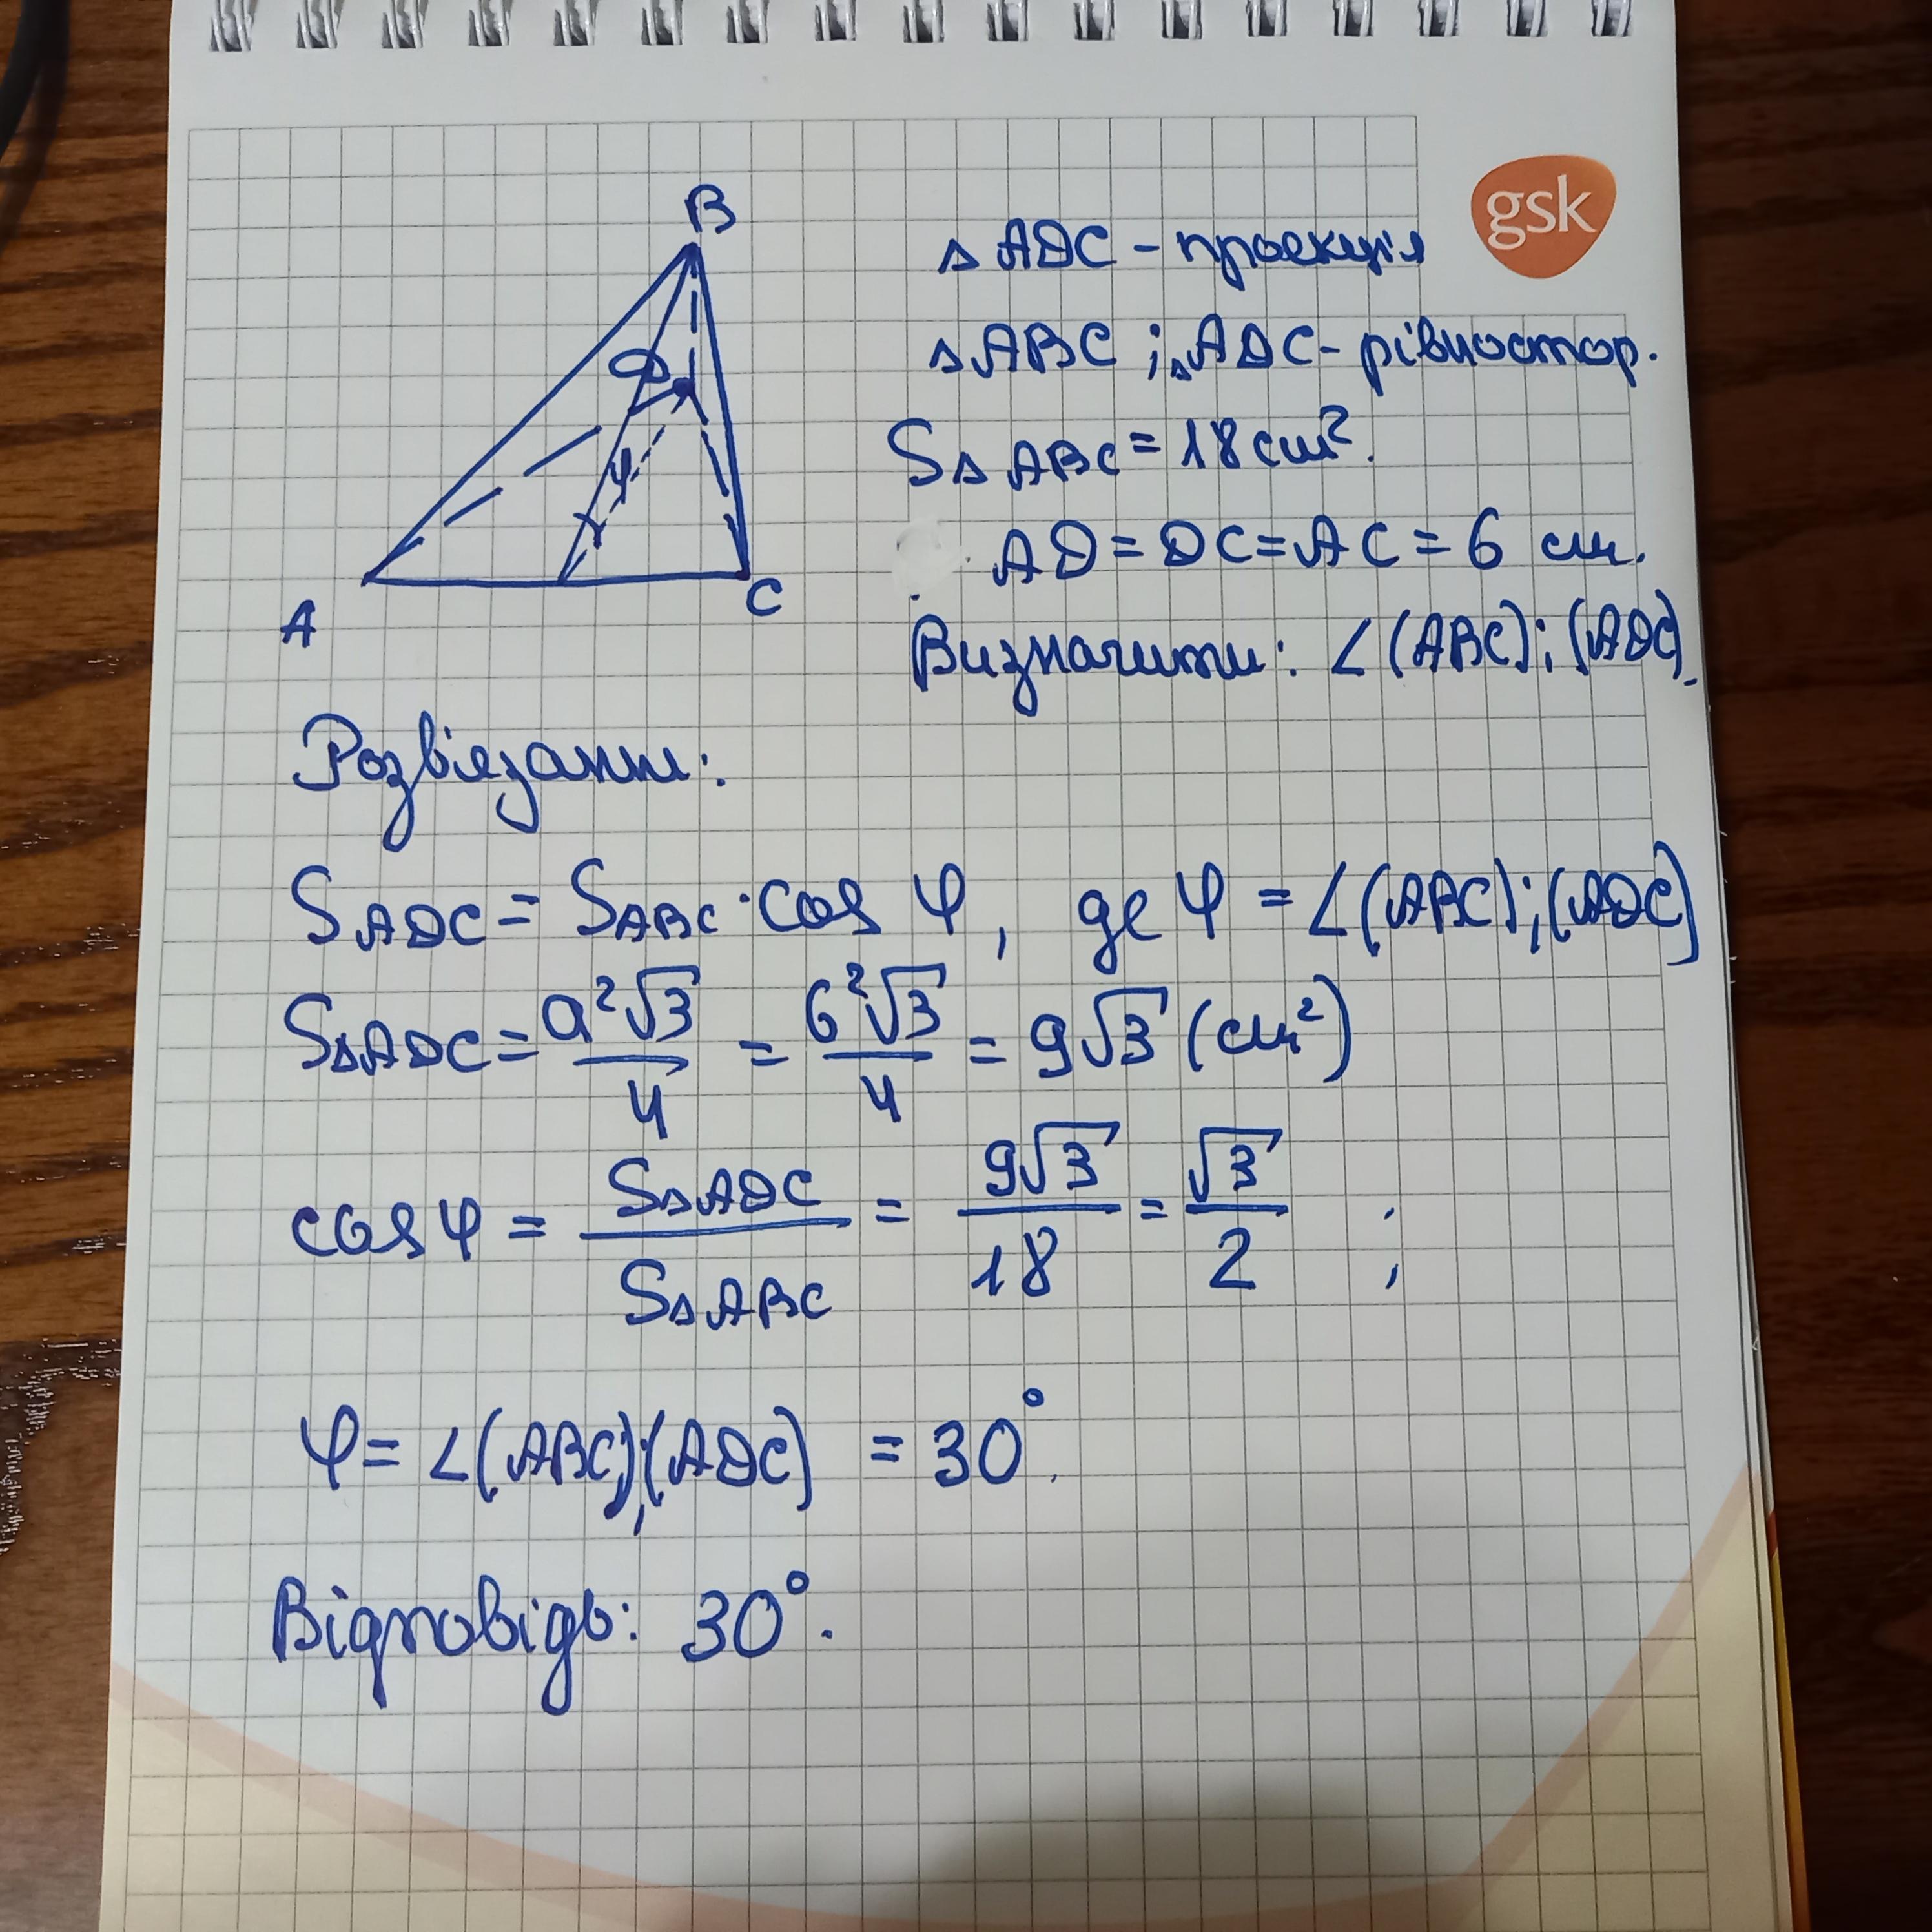 B
gsk
△ ADC - проекція
D
△ABC ; △ADC - рівностор.
S△ ABC = 18 см².
φ
AD = DC = AC = 6 см.
A
C
Визначити: ∠(ABC); (ADC).
Розвʼязання:
S ADC = S ABC · cos φ, де φ = ∠(ABC);(ADC)
S△ADC = a²√3/4 = 6²√3/4 = 9√3 (см²)
cos φ = S△ADC/S△ABC = 9√3/18 = √3/2 ;
φ = ∠(ABC);(ADC) = 30°.
Відповідь: 30°.